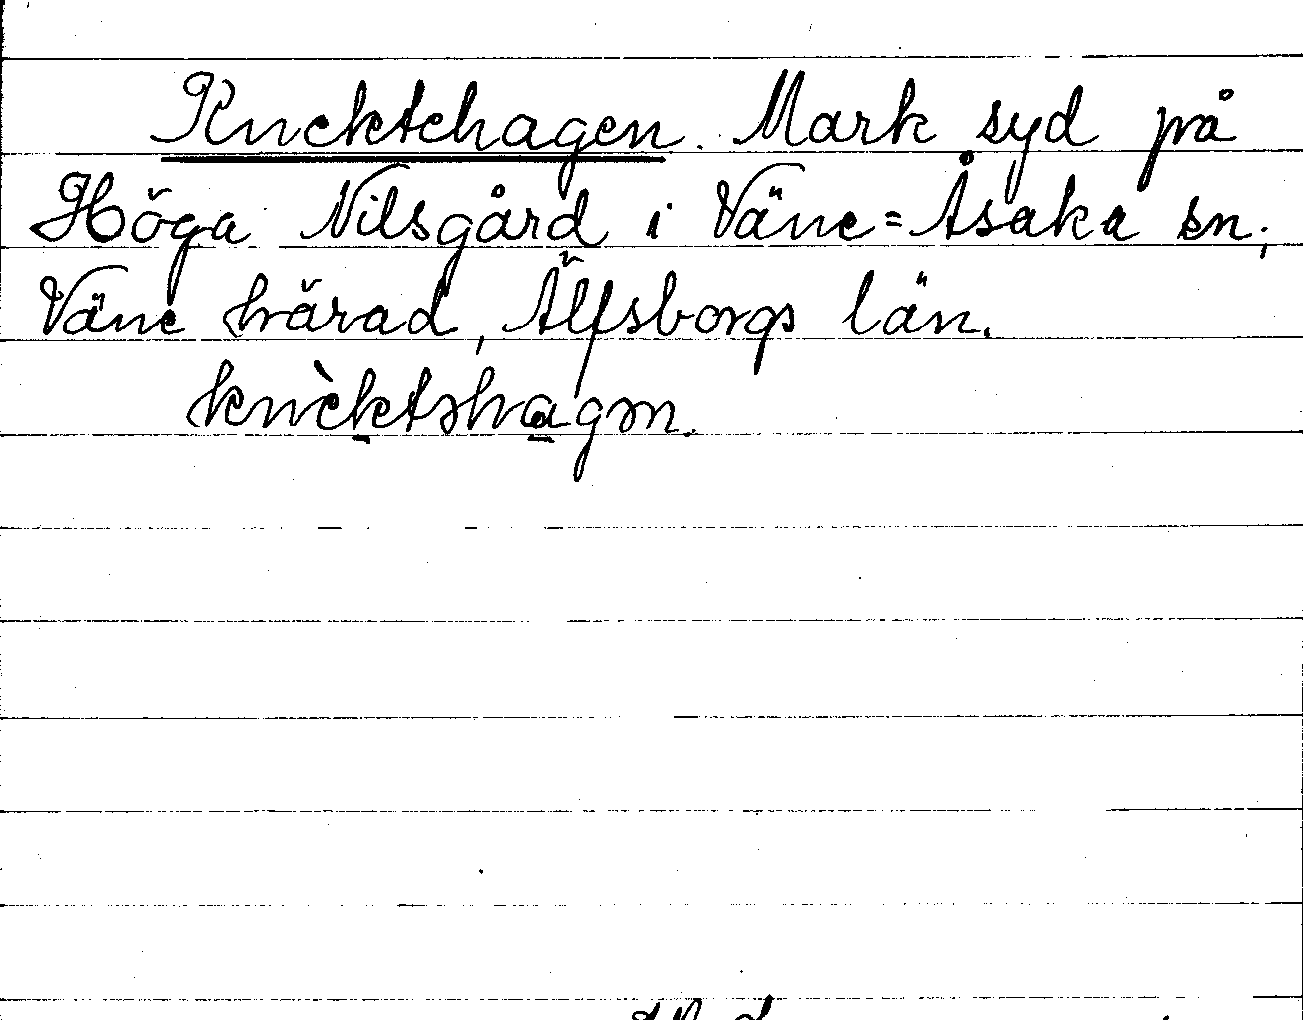 Knektehagen. Mark syd på
Höga Nilsgård i Väne=Åsaka sn,
Väne härad, Älfsborgs län.
knèktəhagən.